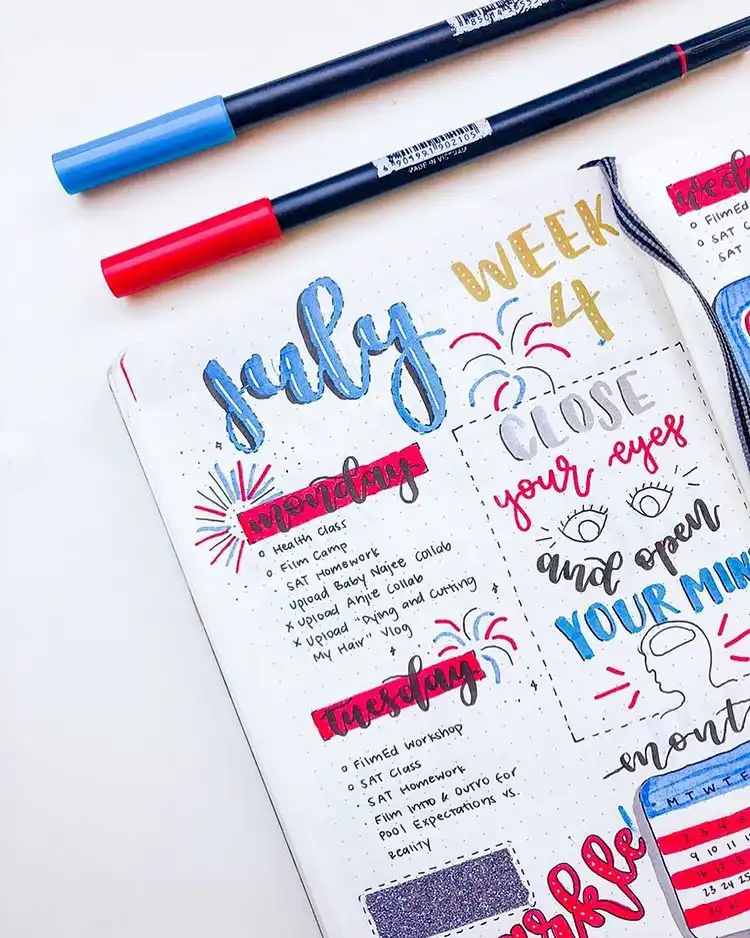 4 901991 902105
MADE IN VIETNAM
july
WEEK
4
monday
o Health Class
o Film Camp
· SAT Homework
· Upload Baby Najee Collab
x Upload Anjie Collab
x Upload "Dying and Cutting
My Hair" Vlog
tuesday
o FilmEd Workshop
o SAT Class
· SAT Homework
· Film Intro & Outro for
Pool Expectations vs.
Reality
CLOSE
your eyes
and open
YOUR MIN
mont
M T W T F
9 10 11
23 24 25
o FilmEd
o SAT C
SAT